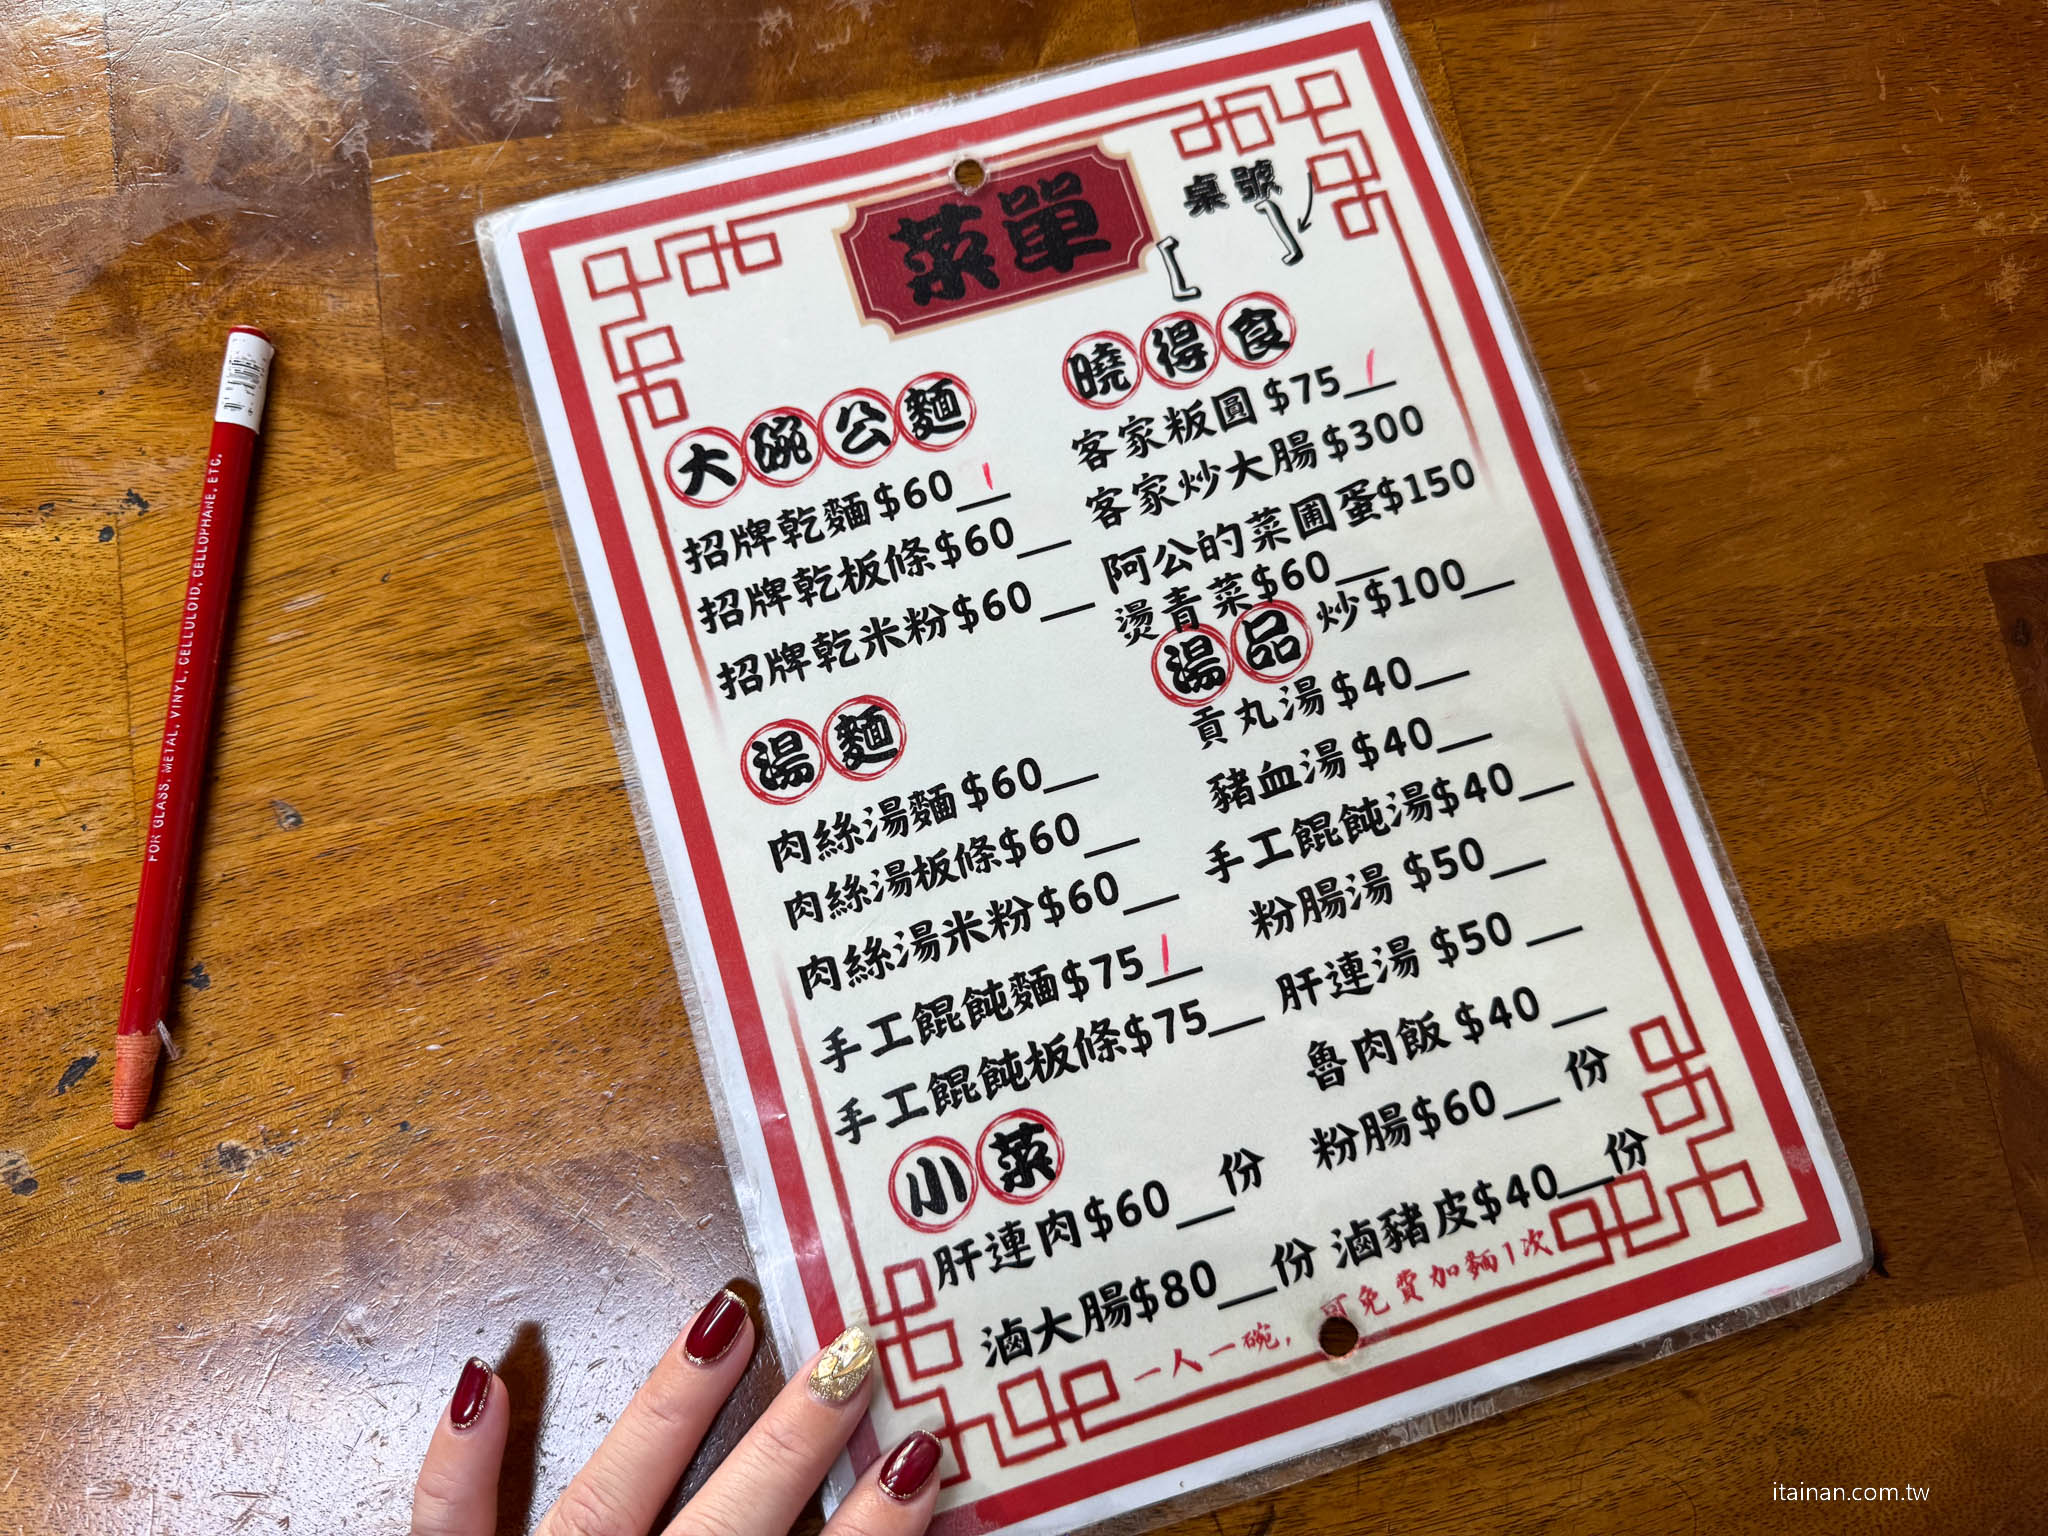 菜單
桌號
[ ]
大碗公麵
招牌乾麵$60
招牌乾板條$60
招牌乾米粉$60
湯麵
肉絲湯麵$60
肉絲湯板條$60
肉絲湯米粉$60
手工餛飩麵$75
手工餛飩板條$75
小菜
肝連肉$60__份
滷大腸$80__份
粉腸$60__份
滷豬皮$40__份
曉得食
客家粄圓$75
客家炒大腸$300
阿公的菜圃蛋$150
燙青菜$60
炒$100
湯品
貢丸湯$40
豬血湯$40
手工餛飩湯$40
粉腸湯$50
肝連湯$50
魯肉飯$40
一人一碗,可免費加麵1次
FOR GLASS, METAL, VINYL, CELLULOID, CELLOPHANE, ETC.
itainan.com.tw